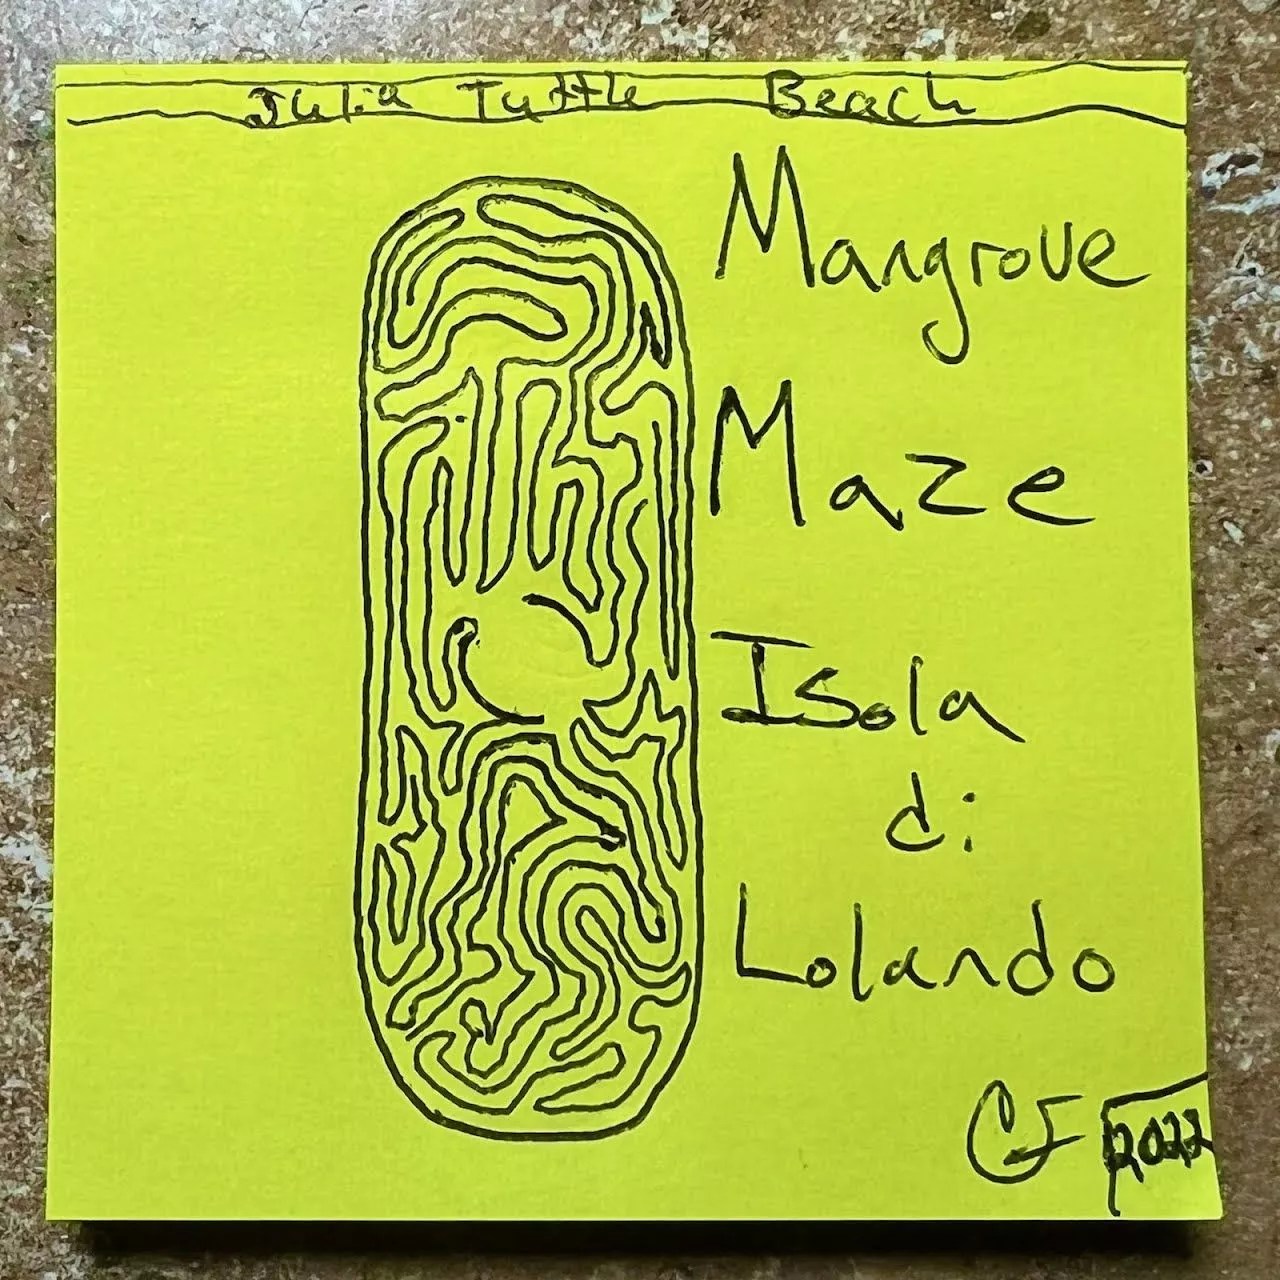 Julia Tuttle Beach
Mangrove
Maze
Isola
di
Lolando
CF 2022